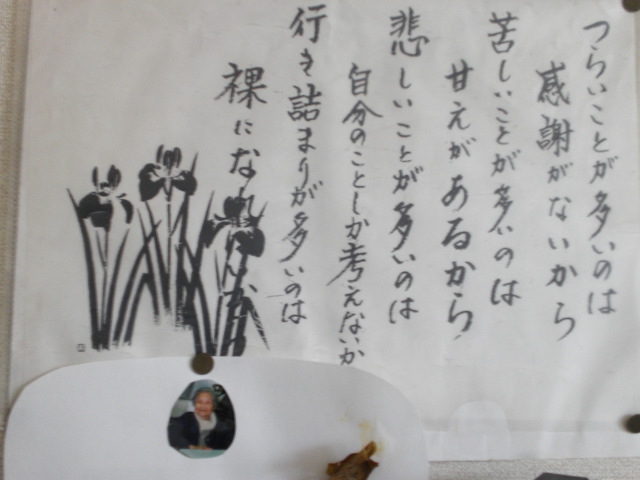 つらいことが多いのは
感謝がないから
苦しいことが多いのは
甘えがあるから
悲しいことが多いのは
自分のことしか考えないか
行き詰まりが多いのは
裸になれ